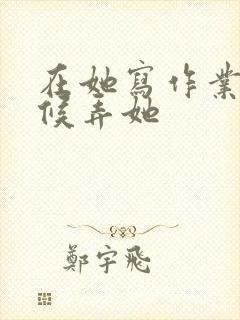 在她寫作業
候弄她
鄭宇飛